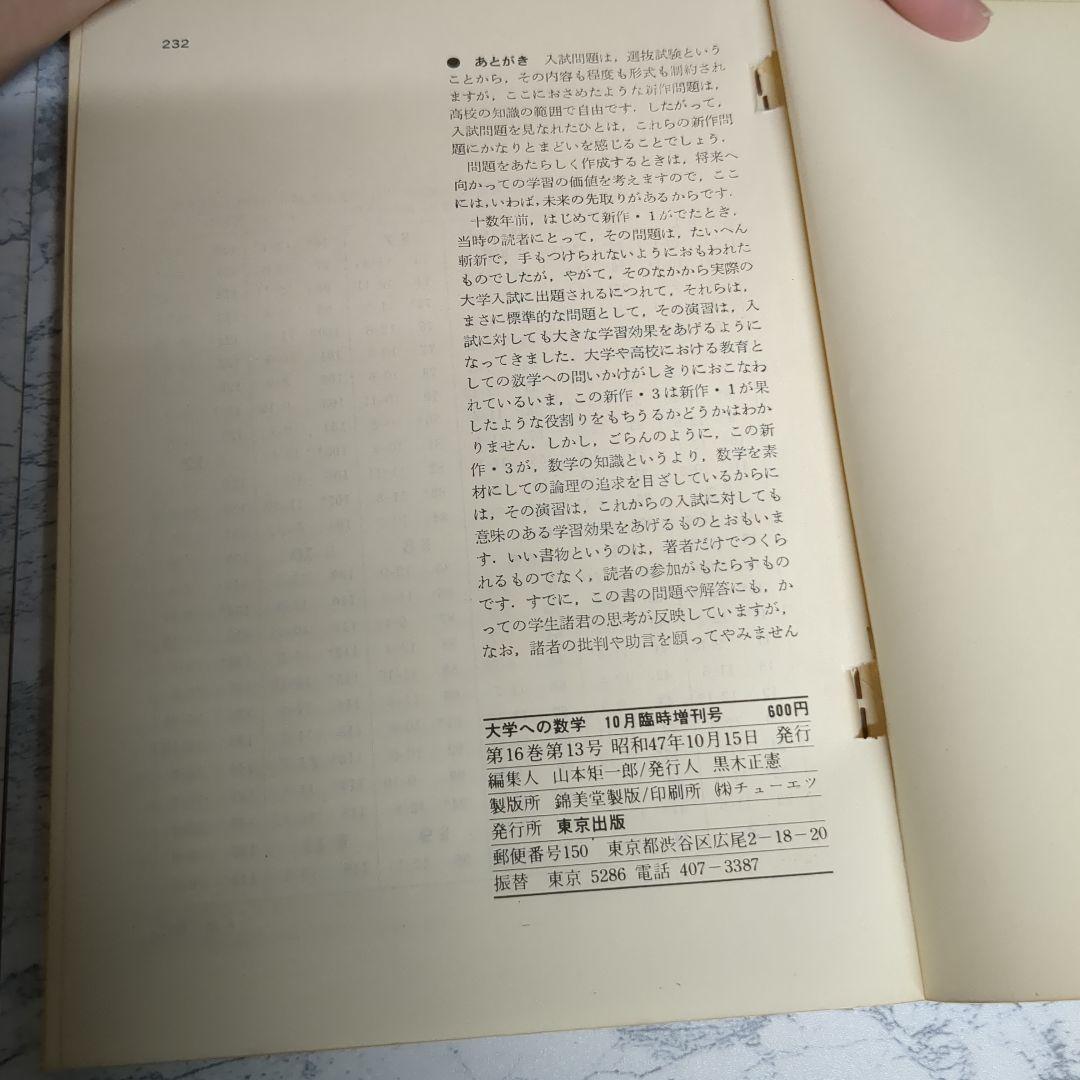 232
● あとがき 入試問題は，選抜試験という
ことから，その内容も程度も形式も制約され
ますが，ここにおさめたような新作問題は，
高校の知識の範囲で自由です．したがって，
入試問題を見なれたひとは，これらの新作問
題にかなりとまどいを感じることでしょう．
問題をあたらしく作成するときは，将来へ
向かっての学習の価値を考えますので，ここ
には，いわば，未来の先取りがあるからです．
十数年前，はじめて新作・1がでたとき．
当時の読者にとって，その問題は，たいへん
斬新で，手もつけられないようにおもわれた
ものでしたが，やがて，そのなかから実際の
大学入試に出題されるにつれて，それらは，
まさに標準的な問題として，その演習は，入
試に対しても大きな学習効果をあげるように
なってきました．大学や高校における教育と
しての数学への問いかけがしきりにおこなわ
れているいま，この新作・3は新作・1が果
したような役割りをもちうるかどうかはわか
りません．しかし，ごらんのように，この新
作・3が，数学の知識というより，数学を素
材にしての論理の追求を目ざしているからに
は，その演習は，これからの入試に対しても
意味のある学習効果をあげるものとおもいま
す．いい書物というのは，著者だけでつくら
れるものでなく，読者の参加がもたらすもの
です．すでに，この書の問題や解答にも，か
っての学生諸君の思考が反映していますが，
なお，諸者の批判や助言を願ってやみません
大学への数学 10月臨時増刊号 600円
第16巻第13号 昭和47年10月15日 発行
編集人 山本矩一郎/発行人 黒木正憲
製版所 錦美堂製版/印刷所 ㈱チューエツ
発行所 東京出版
郵便番号150 東京都渋谷区広尾2－18－20
振替 東京 5286 電話 407－3387